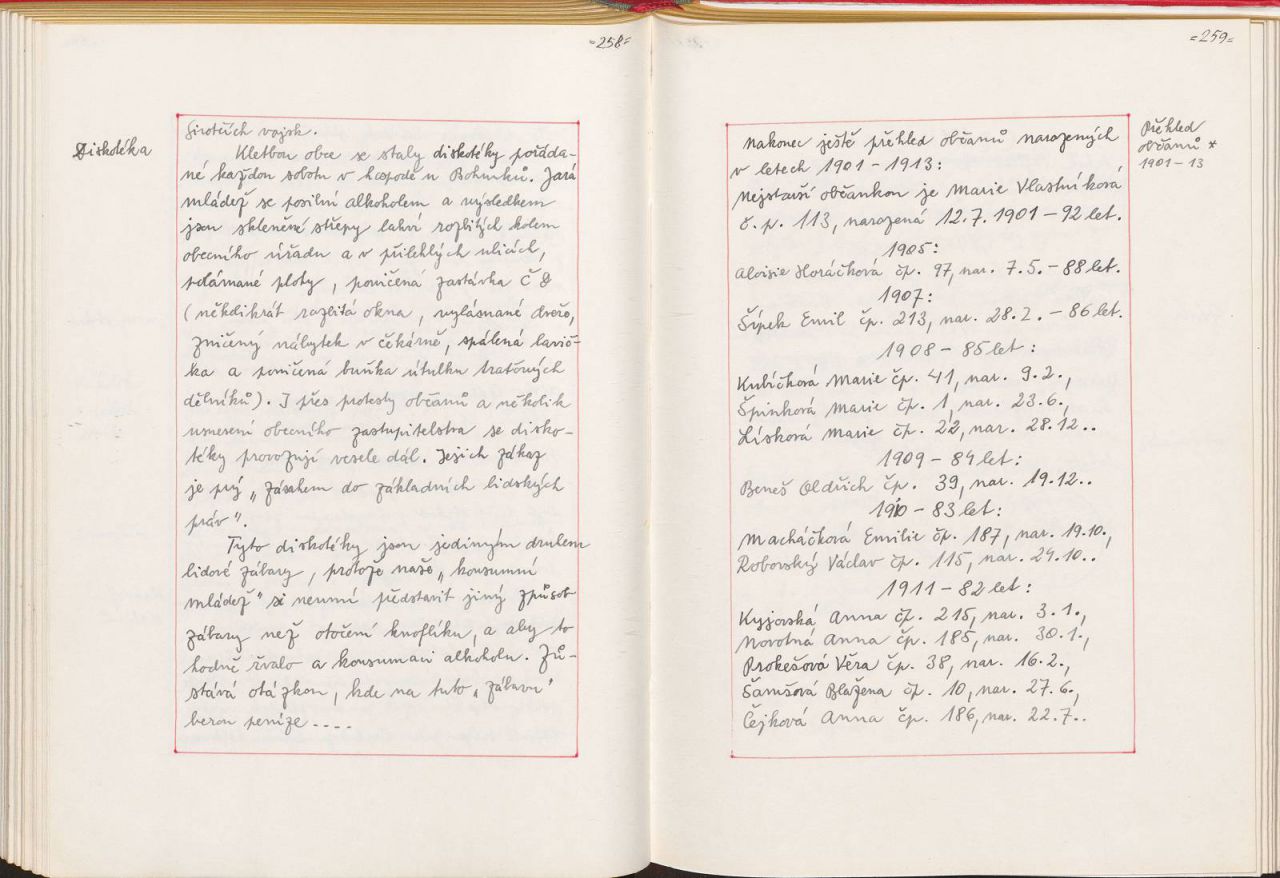 =258=
Diskotéka
sirotčích vojsk.
Kletbou obce se staly diskotéky pořáda-
né každou sobotu v hospodě u Bohuňků. Jará
mládež se posilní alkoholem a výsledkem
jsou skleněné střepy lahví rozbitých kolem
obecního úřadu a v přilehlých ulicích,
polámané ploty, poničená zastávka ČD
(několikrát rozbitá okna, vylámané dveře,
zničený nábytek v čekárně, spálená lavič-
ka a poničená buňka útulku traťových
dělníků). I přes protesty občanů a několik
usnesení obecního zastupitelstva se disko-
téky provozují vesele dál. Jejich zákaz
je prý „zásahem do základních lidských
práv".
Tyto diskotéky jsou jediným druhem
lidové zábavy, protože naše „konsumní
mládež" si neumí představit jiný způsob
zábavy než otočení knoflíku, a aby to
hodně řvalo a konsumaci alkoholu. Zů-
stává otázkou, kde na tuto „zábavu"
berou peníze ....
=259=
Přehled
občanů *
1901-13
Nakonec ještě přehled občanů narozených
v letech 1901 - 1913:
Nejstarší občankou je Marie Vlastníková
č.p. 113, narozená 12.7.1901 - 92 let.
1905:
Aloisie Horáčková čp. 97, nar. 7.5. - 88 let.
1907:
Šípek Emil čp. 213, nar. 28.2. - 86 let.
1908 - 85 let:
Kubíčková Marie čp. 41, nar. 9.2.,
Špinková Marie čp. 1, nar. 23.6.,
Lísková Marie čp. 22, nar. 28.12..
1909 - 84 let:
Beneš Oldřich čp. 39, nar. 19.12..
1910 - 83 let:
Macháčková Emilie čp. 187, nar. 19.10.,
Roborský Václav čp. 115, nar. 24.10..
1911 - 82 let:
Kyjovská Anna čp. 215, nar. 3.1.,
Novotná Anna čp. 185, nar. 30.1.,
Prokešová Věra čp. 38, nar. 16.2.,
Šamšová Blažena čp. 10, nar. 27.6.,
Čejková Anna čp. 186, nar. 22.7..